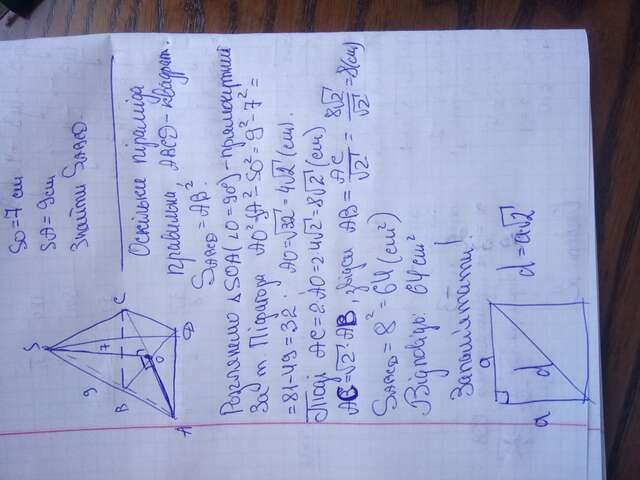 SO=7 см
SA=9см
Знайти SABCD
S
9
7
B
C
O
A
D
Оскільки піраміда
правильна, ABCD-квадрат.
SABCD=AB².
Розглянемо ΔSOA(∠O=90°)-прямокутний
За т. Піфагора AO²=SA²-SO²=9²-7²=
=81-49=32. AO=√32=4√2(см).
Тоді AC=2AO=2·4√2=8√2(см)
AC=√2·AB, звідси AB=AC/√2=8√2/√2=8(см)
SABCD=8²=64(см²)
Відповідь: 64см²
Запам'ятати!
a
a
d
d=a√2